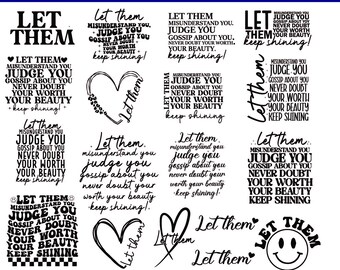 LET
THEM
LET THEM
MISUNDERSTAND YOU,
JUDGE YOU
GOSSIP ABOUT YOU
NEVER DOUBT
YOUR WORTH
YOUR BEAUTY
keep shining!
LET THEM
MISUNDERSTAND YOU.
JUDGE YOU,
GOSSIP ABOUT YOU.
NEVER DOUBT YOUR WORTH
YOUR BEAUTY.
keep shining!
LET
THEM
LET THEM
MISUNDERSTAND YOU
JUDGE YOU
GOSSIP ABOUT YOU
NEVER DOUBT
YOUR WORTH
YOUR BEAUTY
keep shining!
Let them
LET
THEM
MISUNDERSTAND YOU
JUDGE YOU
GOSSIP ABOUT YOU
NEVER DOUBT
YOUR WORTH
YOUR BEAUTY
keep shining!
Let them
MISUNDERSTAND YOU
JUDGE YOU
GOSSIP ABOUT YOU
NEVER DOUBT
YOUR WORTH
YOUR BEAUTY
keep shining!
Let them
MISUNDERSTAND YOU,
JUDGE YOU
GOSSIP ABOUT YOU
NEVER DOUBT
YOUR WORTH
YOUR BEAUTY
keep shining!
Let them
MISUNDERSTAND YOU
JUDGE YOU
GOSSIP ABOUT YOU
NEVER DOUBT
YOUR WORTH
YOUR BEAUTY
keep shining!
Let them,
misunderstand you,
judge you
gossip about you
never doubt your
worth your beauty
keep shining!
Let them,
misunderstand you
judge you
gossip about you
never doubt your
worth your beauty
keep shining!
Let them
MISUNDERSTAND YOU
JUDGE YOU
GOSSIP ABOUT YOU
NEVER DOUBT
YOUR WORTH
YOUR BEAUTY
KEEP SHINING
LET THEM
MISUNDERSTAND YOU
JUDGE YOU
GOSSIP ABOUT YOU
NEVER DOUBT
YOUR WORTH
YOUR BEAUTY
KEEP SHINING
Let them
Let them
Let them
Let them
LET THEM